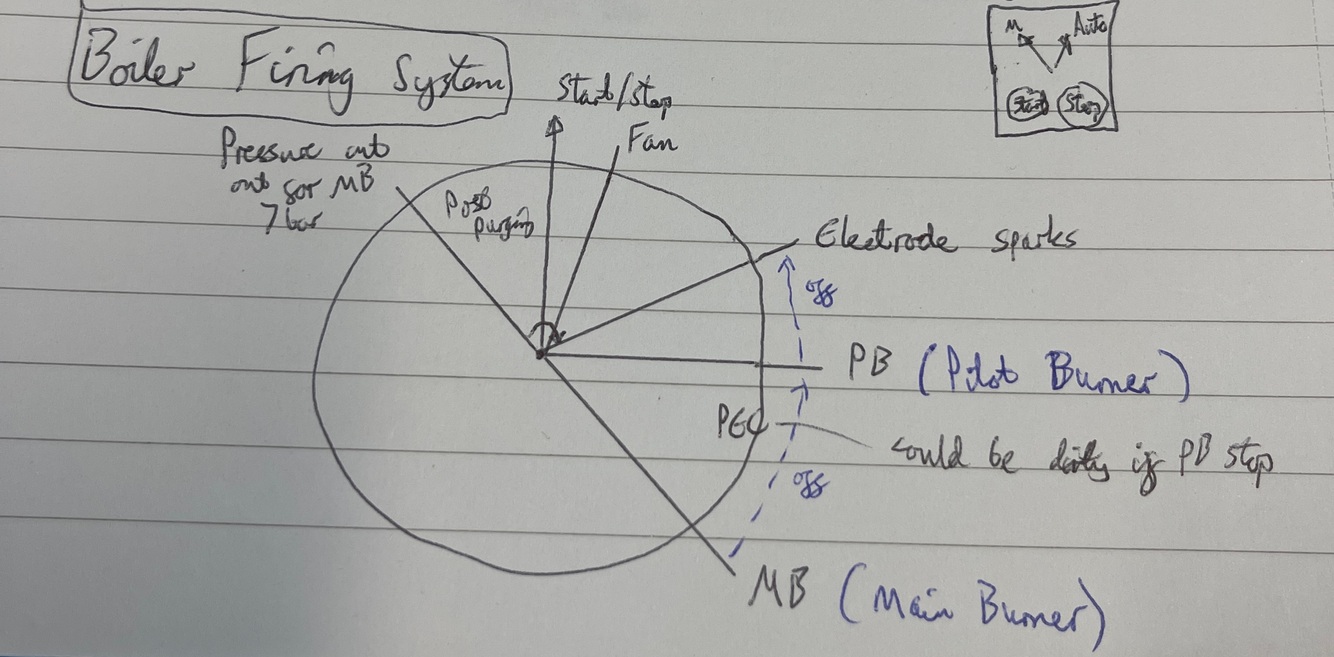 Boiler Firing System
M Auto
Start Stop
Start/Stop
Fan
Pressure cut
out for MB
7 bar
Post
purging
Electrode sparks
off
PB (Pilot Burner)
PEC
could be dirty if PB stop
off
MB (Main Burner)